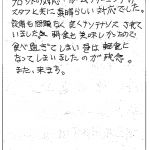 スタッフ共に素晴らしい対応でした。
設備も問題なく良くメンテナンスされて
いました。朝食も美味しかったので
食べ過ぎてしまい昼は軽食に
なってしまいましたのが残念。
また、来ます。